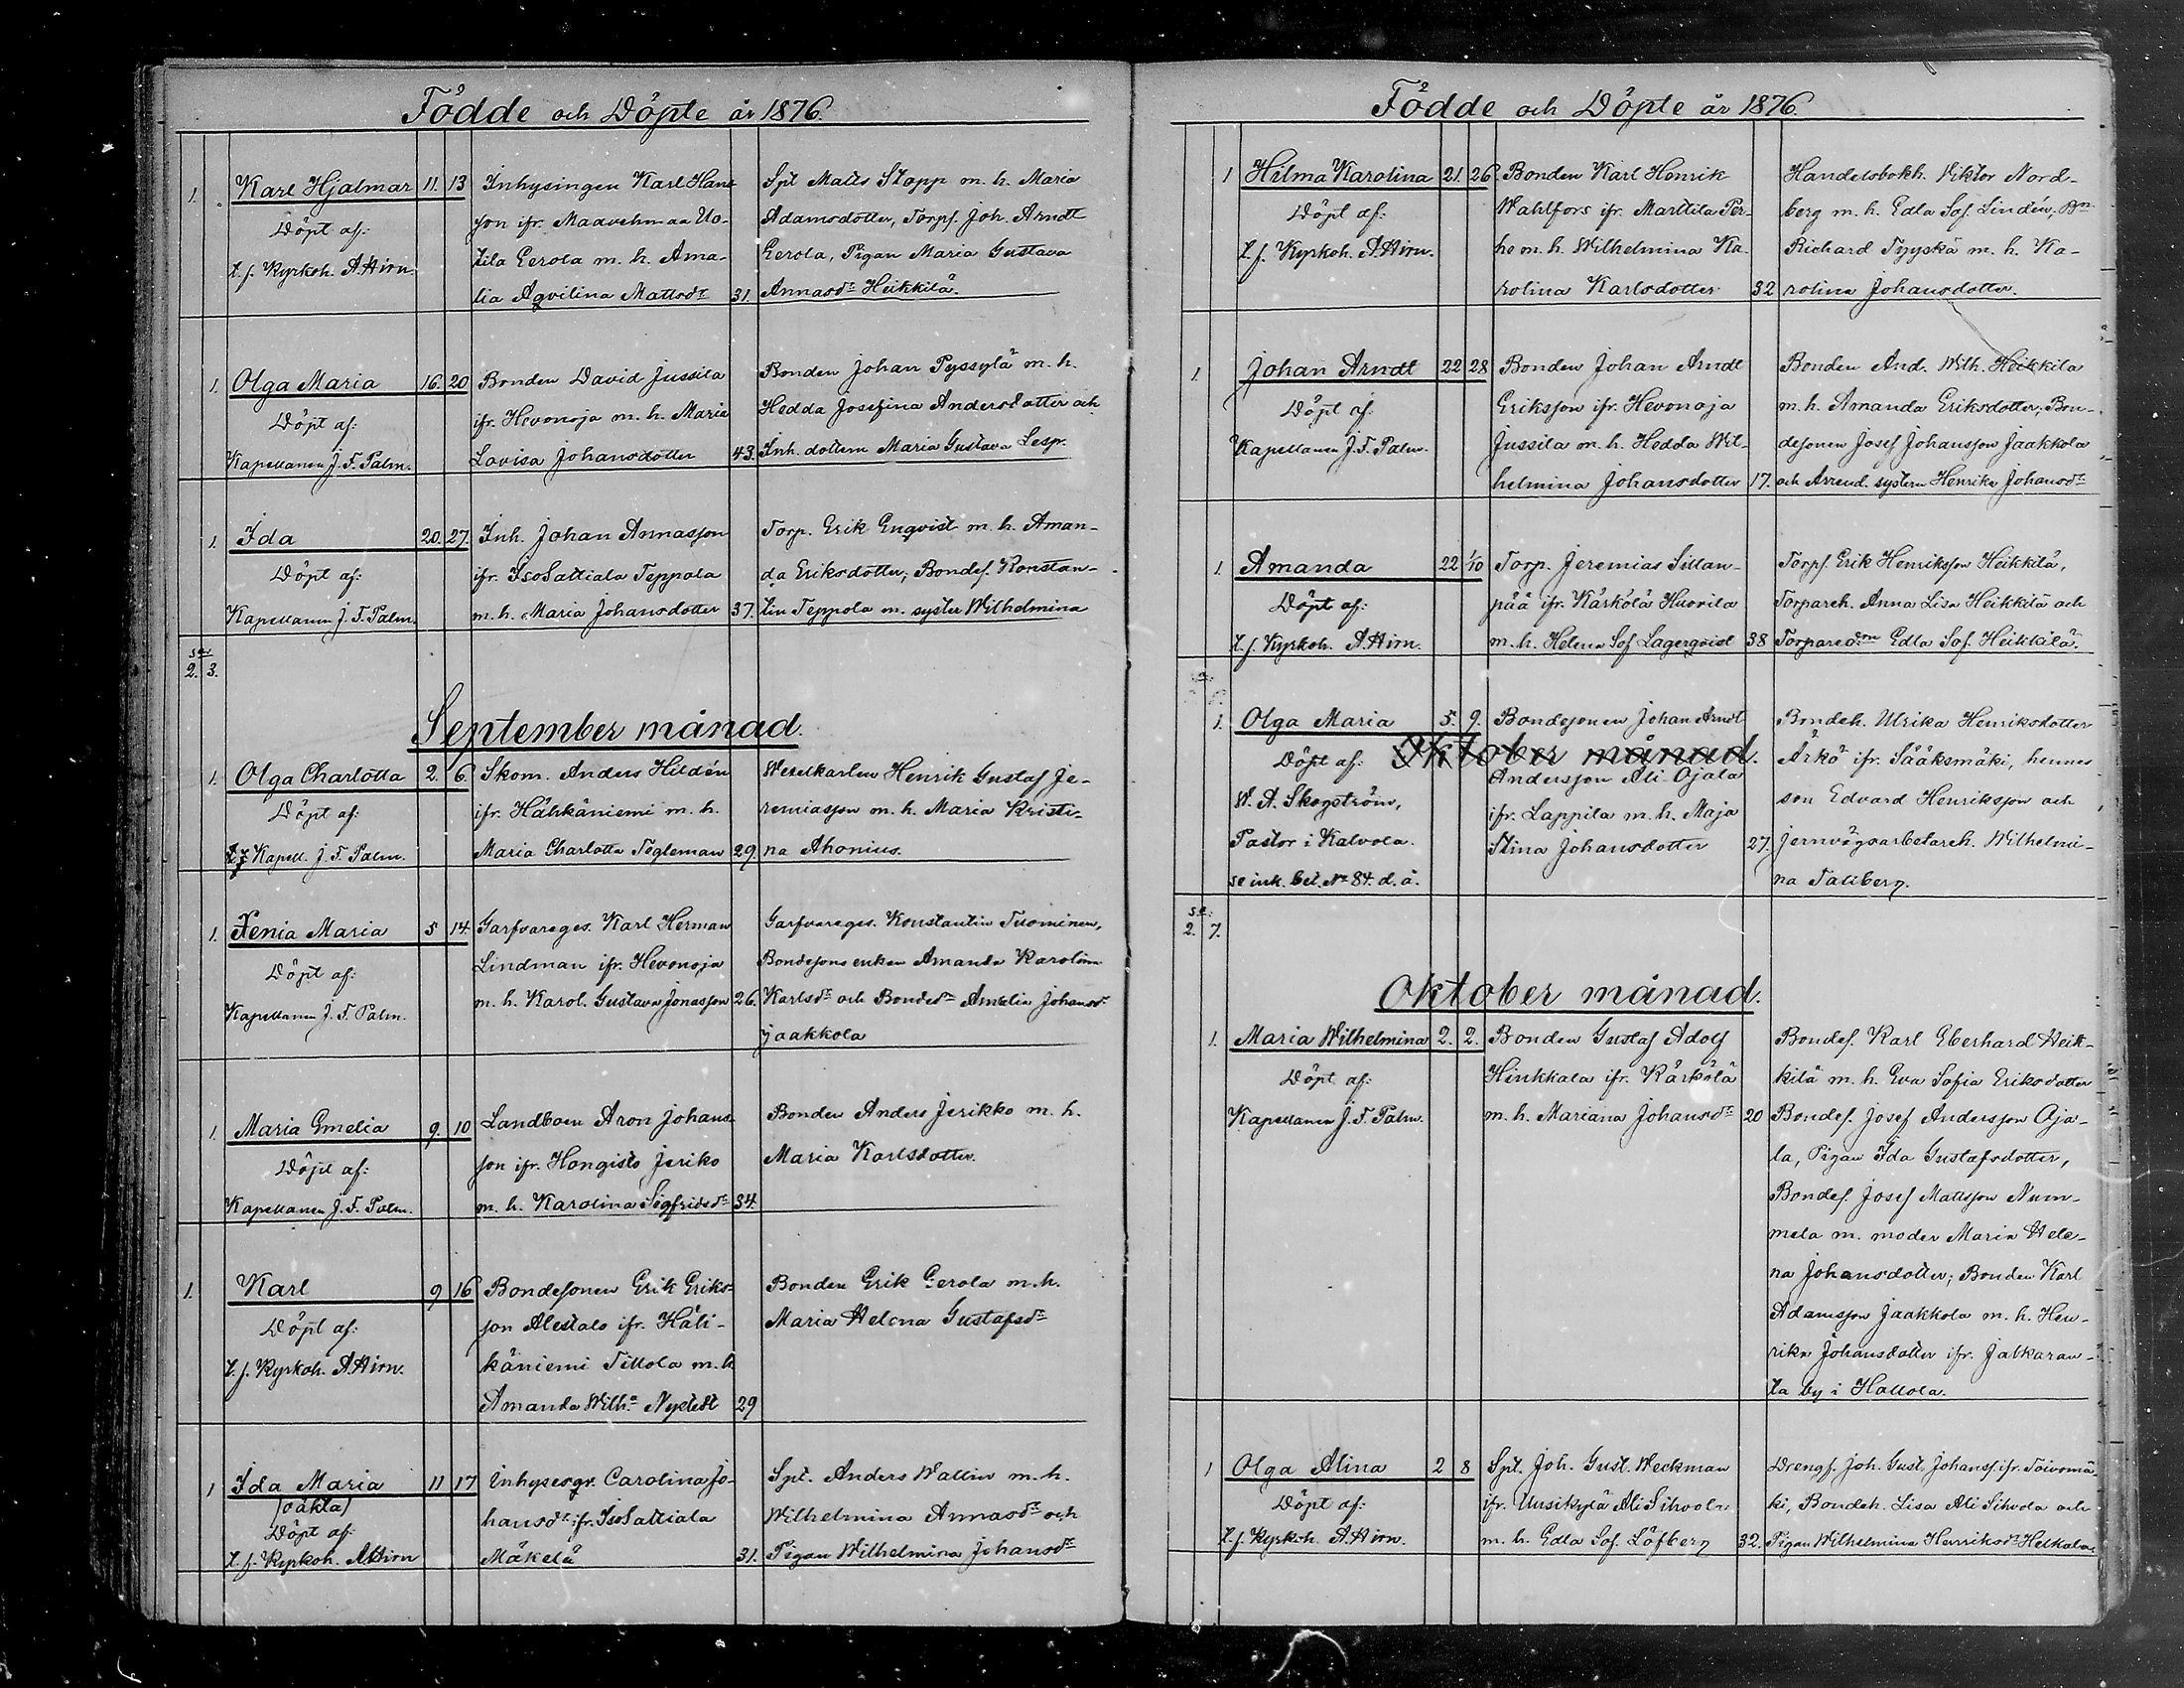 Födde och Döpte år 1876.
1. Karl Hjalmar 11. 13 Inhysingen Karl Hans- Spt Matts Stapp m. h. Maria
Döpt af: son ifr. Maavehmaa Uo- Adamsdotter, Torps. Joh. Arndt
t. f. Kyrkoh. A. Hirn. tila Eerola m. h. Ama- Eerola, Pigan Maria Gustava
lia Aqvilina Mattsdr 31. Annasdr Heikkilä.
1. Olga Maria 16. 20 Bonden David Jussila Bonden Johan Pyssylä m. h.
Döpt af: ifr. Hevonoja m. h. Maria Hedda Josefina Andersdotter och
Kapellanen J. F. Palm. Lovisa Johansdotter 43. Inh. dottern Maria Gustava Lesp.
1. Ida 20. 27. Inh. Johan Annasson Torp. Erik Enqvist m. h. Aman-
Döpt af: ifr. IsoSattiala Teppola da Eriksdotter; Bondes. Konstan-
Kapellanen J. F. Palm. m. h. Maria Johansdotter 37. tin Teppola m. syster Wilhelmina
2. 3.
September månad.
1. Olga Charlotta 2. 6. Skom. Anders Hildén Wexelkarlen Henrik Gustaf Je-
Döpt af: ifr. Hähkäniemi m. h. remiasson m. h. Maria Kristi-
Kapell. J. F. Palm. Maria Charlotta Tegleman 29. na Ahonius.
1. Xenia Maria 5 14. Garfvareges. Karl Herman Garfvareges. Konstantin Tuominen,
Döpt af: Lindman ifr. Hevonoja Bondesons enkan Amanda Karolina
Kapellanen J. F. Palm. m. h. Karol. Gustava Jonasson 26. Karlsdr och Bondedr Amalia Johansdr
Jaakkola
1. Maria Emelia 9. 10 Landboen Aron Johans- Bonden Anders Jerikko m. h.
Döpt af: son ifr. Hongisto Jeriko Maria Karlsdotter.
Kapellanen J. F. Palm. m. h. Karolina Sigfridsdr 34.
1. Karl 9 16 Bondesonen Erik Eriks- Bonden Erik Eerola m. h.
Döpt af: son Alestalo ifr. Häh- Maria Helena Gustafsdr
t. f. Kyrkoh. A. Hirn. käniemi Tillola m. h.
Amanda Wilha Nystedt 29
1 Ida Maria 11 17 Inhysesqv. Carolina Jo- Spt. Anders Wallin m. h.
(oäkta) hansdr ifr. IsoSattiala Wilhelmina Annasdr och
Döpt af: Mäkelä 31. Pigan Wilhelmina Johansdr
t. f. Kyrkoh. A. Hirn
Födde och Döpte år 1876.
1 Hilma Karolina 21. 26. Bonden Karl Henrik Handelsbokh. Viktor Nord-
Döpt af: Wahlfors ifr. Marttila Per- berg m. h. Edla Sof. Lindén; Bn
t. f. Kyrkoh. A. Hirn. he m. h. Wilhelmina Ka- Richard Tyyskä m. h. Ka-
rolina Karlsdotter 32 rolina Johansdotter.
1. Johan Arndt 22 28 Bonden Johan Arndt Bonden And. Wilh. Heikkilä
Döpt af: Eriksson ifr. Hevonoja m. h. Amanda Eriksdotter; Bon-
Kapellanen J. F. Palm. Jussila m. h. Hedda Wil- desonen Josef Johansson Jaakkola
helmina Johansdotter 17. och Arrend. systern Henrika Johansdr
1. Amanda 22 1/10 Torp. Jeremias Sillan- Torps. Erik Henriksson Heikkilä,
Döpt af: pää ifr. Kärkölä Huovila Torpareh. Anna Lisa Heikkilä och
t. f. Kyrkoh. A. Hirn. m. h. Helena Sof. Lagerqvist 38 Torparedrn Edla Sof. Heikkilä.
1. Olga Maria 5. 9. Bondesonen Johan Arndt Bondeh. Ulrika Henriksdotter
Döpt af: Oktober månad. Ärkö ifr. Sääksmäki, hennes
Andersson Ali-Ojala
W. A. Skogström, ifr. Lappila m. h. Maja son Edvard Henriksson och
Pastor i Kalvola. Stina Johansdotter 27. jernvägsarbetareh. Wilhelmi-
se ink. bet. No 84. d. å. na Tallberg.
2. 7.
Oktober månad.
1. Maria Wilhelmina 2. 2. Bonden Gustaf Adolf Bondes. Karl Eberhard Heik-
Döpt af: Hinkkala ifr. Kärkölä kilä m. h. Eva Sofia Eriksdotter
Kapellanen J. F. Palm. m. h. Mariana Johansdr 20 Bondes. Josef Andersson Oja-
la, Pigan Ida Gustafsdotter,
Bondes. Josef Mattsson Num-
mela m. moder Maria Hele-
na Johansdotter; Bonden Karl
Adamsson Jaakkola m. h. Hen-
rika Johansdotter ifr. Jalkaran-
ta by i Hollola.
1 Olga Alina 2 8 Spt. Joh. Gust. Weckman Drengs. Joh. Gust. Johanss. ifr. Toivomä-
Döpt af: ifr. Uusikylä Ali Sihvola ki, Bondeh. Lisa Ali Sihvola och
t. f. Kyrkoh. A. Hirn. m. h. Edla Sof. Löfberg 32. Pigan Wilhelmina Henriksdr Helkala.